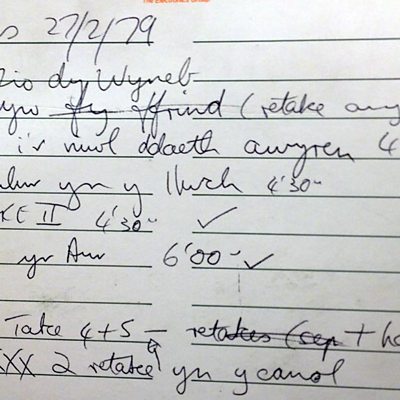 The Electronics Group
27/2/79
dy Wyneb
ffrind (retake
i'r niwl ddaeth awyren 4
yn y llwch 4'30"
KE II 4'30" ✓
yr Aur 6'00" ✓
Take 4+5 — retakes (sep + h
XXX 2 retake yn y canol